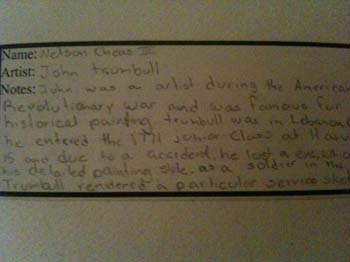 Name: Nelson Cheas III
Artist: John trumbull
Notes: John was a artist during the American
Revolutionary war and was famous fur
historical painting. trumbull was in Lebanon,
he entered the 1771 junior class at Harv
15 and due to a accident, he lost a eye, whic
his detailed painting style. as a soldier in the
Trumbull rendered a particular service sket